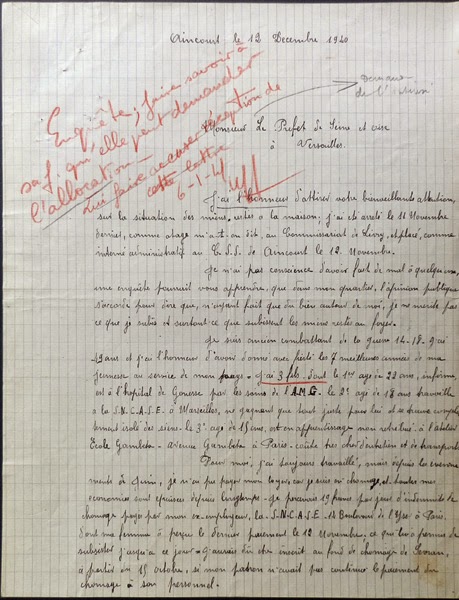 Aincourt le 12 Decembre 1940
Enquête; faire savoir à
sa f. qu'elle peut demander
l'allocation -
Lui faire accuser réception de
cette lettre
6-1-41
Demande
de l'interné
Monsieur Le Prefet de Seine et oise
à Versailles.
J'ai l'honneur d'attirer votre bienveillante attention,
sur la situation des miens, restés à la maison; j'ai été arrêté le 11 Novembre
dernier, comme otage m'a-t-on dit, au Commissariat de Livry, et placé, comme
interné administratif au C.S.S. de Aincourt le 12 Novembre.
Je n'ai pas conscience d'avoir fait de mal à quelqu'un,
une enquête pourrait vous apprendre, que dans mon quartier, l'opinion publique
s'accorde pour dire que, n'ayant fait que du bien autour de moi, je ne merite pas
ce que je subis et surtout ce que subissent les miens restés au foyer.
Je suis ancien combattant de la guerre 14-18. j'ai
49 ans et j'ai l'honneur d'avoir donné avec fierté les 7 meilleures années de ma
jeunesse au service de mon pays - j'ai 3 fils, dont le 1er agé de 22 ans, infirme
est à l'hopital de Gonesse par les soins de l'A.M.G. le 2e agé de 18 ans travaille
à la S.N.C.A.S.E. à Marseille, ne gagnant que tout juste pour lui
mais isolé des siens. le 3e agé de 15 ans, est en apprentissage non retribué à l'atelier
Ecole Gambetta - avenue Gambetta à Paris - coûte très cher d'entretien et de transports
Pour moi, j'ai toujours travaillé, mais depuis les evene-
ments de Juin, je n'ai pu payer mon loyer, car je suis en chomage, et toutes mes
economies sont épuisées depuis longtemps - je percevais 19 francs par jour d'indemnité de
chomage payé par mon ex-employeur, la S-N-C-A-S-E- 14 Boulevard de l'Yser à Paris,
dont ma femme a perçu le dernier paiement le 12 Novembre, ce qui lui a permis de
subsister jusqu'à ce jour - J'aurais dû être inscrit au fond de chomage de Sevran,
à partir du 15 octobre, si mon patron n'avait pas continué le paiement du
chomage à son personnel.